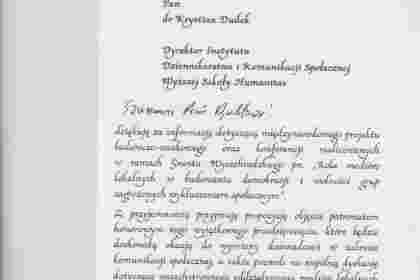 Pan
dr Krystian Dudek
Dyrektor Instytutu
Dziennikarstwa i Komunikacji Społecznej
Wyższej Szkoły Humanitas
Szanowny Panie Dyrektorze!
dziękuję za informację dotyczącą międzynarodowego projektu
badawczo-naukowego oraz konferencji realizowanych
w ramach Grantu Wyszehradzkiego pn. „Rola mediów
lokalnych w budowaniu demokracji i wolności grup
zagrożonych wykluczeniem społecznym".
Z przyjemnością przyjmuję propozycję objęcia patronatem
honorowym tego wyjątkowego przedsięwzięcia, które będzie
doskonałą okazją do wymiany doświadczeń w zakresie
komunikacji społecznej, a także pozwoli na wspólną dyskusję